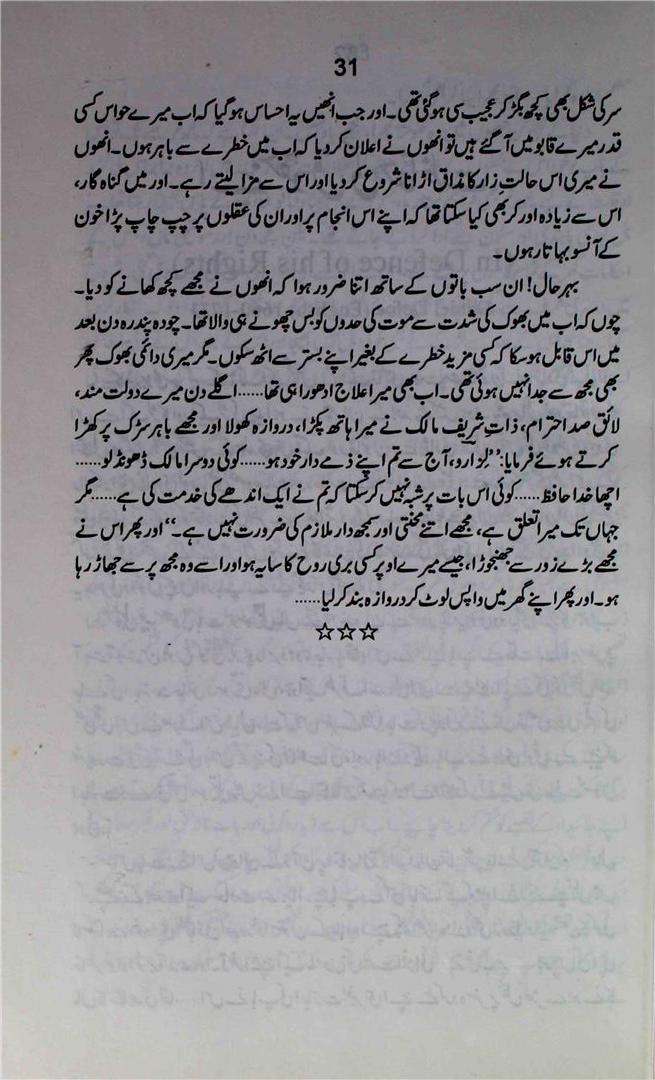 31
سر کی شکل بھی کچھ بگڑ کر عجیب سی ہو گئی تھی۔ اور جب انھیں یہ احساس ہو گیا کہ اب میرے حواس کسی
قدر میرے قابو میں آ گئے ہیں تو انھوں نے اعلان کر دیا کہ اب میں خطرے سے باہر ہوں۔ انھوں
نے میری اس حالتِ زار کا مذاق اڑانا شروع کر دیا اور اس سے مزا لیتے رہے۔ اور میں گناہ گار،
اس سے زیادہ اور کر بھی کیا سکتا تھا کہ اپنے اس انجام پر اور ان کی عقلوں پر چپ چاپ پڑا خون
کے آنسو بہاتا رہوں۔
بہر حال! ان سب باتوں کے ساتھ اتنا ضرور ہوا کہ انھوں نے مجھے کچھ کھانے کو دیا۔
چوں کہ اب میں بھوک کی شدت سے موت کی حدوں کو بس چھونے ہی والا تھا۔ چودہ پندرہ دن بعد
میں اس قابل ہو سکا کہ کسی مزید خطرے کے بغیر اپنے بستر سے اٹھ سکوں۔ مگر میری دائمی بھوک پھر
بھی مجھ سے جدا نہیں ہوئی تھی۔ اب بھی میرا علاج ادھورا ہی تھا...... اگلے دن میرے دولت مند،
لائق صد احترام، ذاتِ شریف مالک نے میرا ہاتھ پکڑا، دروازہ کھولا اور مجھے باہر سڑک پر کھڑا
کرتے ہوئے فرمایا: ’’لزارو، آج سے تم اپنے ذمے دار خود ہو...... کوئی دوسرا مالک ڈھونڈ لو......
اچھا خدا حافظ...... کوئی اس بات پر شبہ نہیں کر سکتا کہ تم نے ایک اندھے کی خدمت کی ہے...... مگر
جہاں تک میرا تعلق ہے، مجھے اتنے محنتی اور سمجھ دار ملازم کی ضرورت نہیں ہے۔‘‘ اور پھر اس نے
مجھے بڑے زور سے جھنجوڑا، جیسے میرے اوپر کسی بری روح کا سایہ ہو اور اسے وہ مجھ پر سے جھاڑ رہا
ہو۔ اور پھر اپنے گھر میں واپس لوٹ کر دروازہ بند کر لیا......
☆☆☆